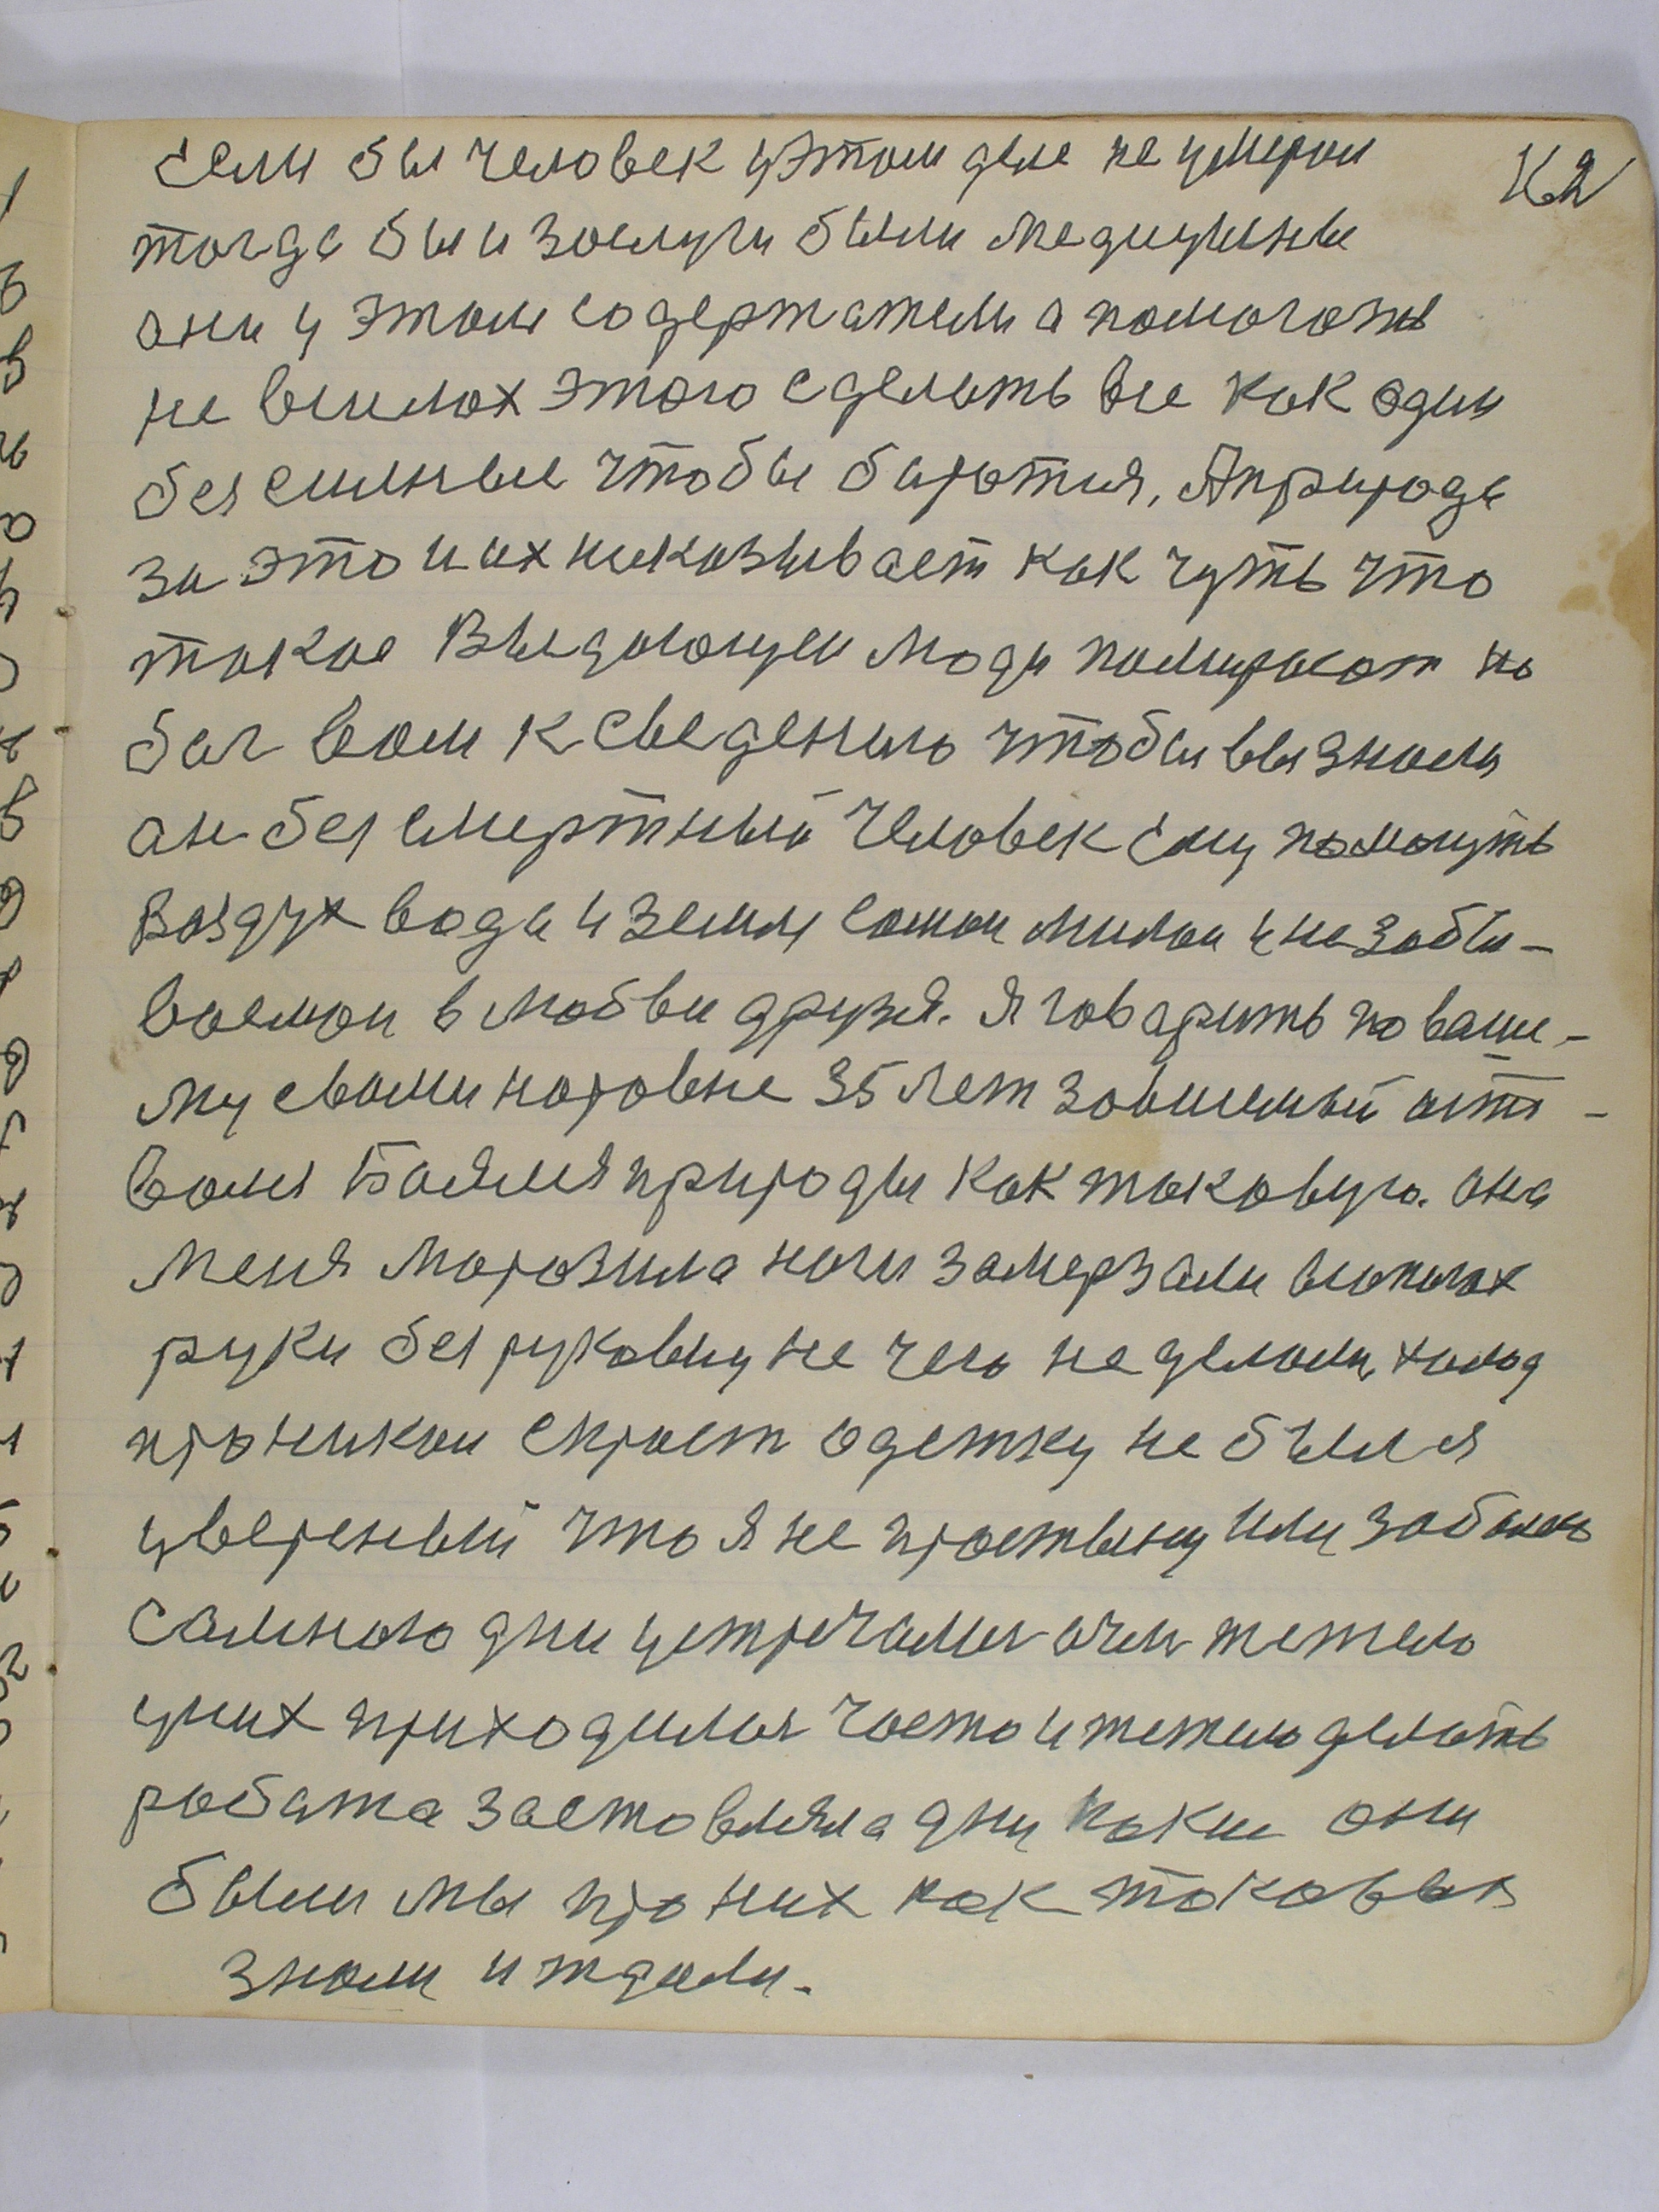 Если бы человек уэтом деле не умерал
тогда бы и заслуги были медицины
они у этом содержатели а помогать
не всилах этого сделать все как один
безсильные чтобы баротися, Априрода
за это и их наказывает как чуть что
такое Выдающеи люди помирают но
бог вам к сведению чтобы вы знали
он безсмертный человек Ему помогуть
Воздух вода и земля самои милаи и незабы-
ваемаи в любви друзя. Я говарить по ваше-
му свами наровне 35 лет зависемый от
Баялся природы как таковую. она
меня морозила ноги замерзали
руки без руковиц не чего не делали, холод
проникал скрость одетку не был я
уверенный что я не простыну или заболею
Самною дни устречались тежело
уних приходилося часто и тежело делать
работа заставляла дни какие они
были мы про них как таковых
знали и ждали.